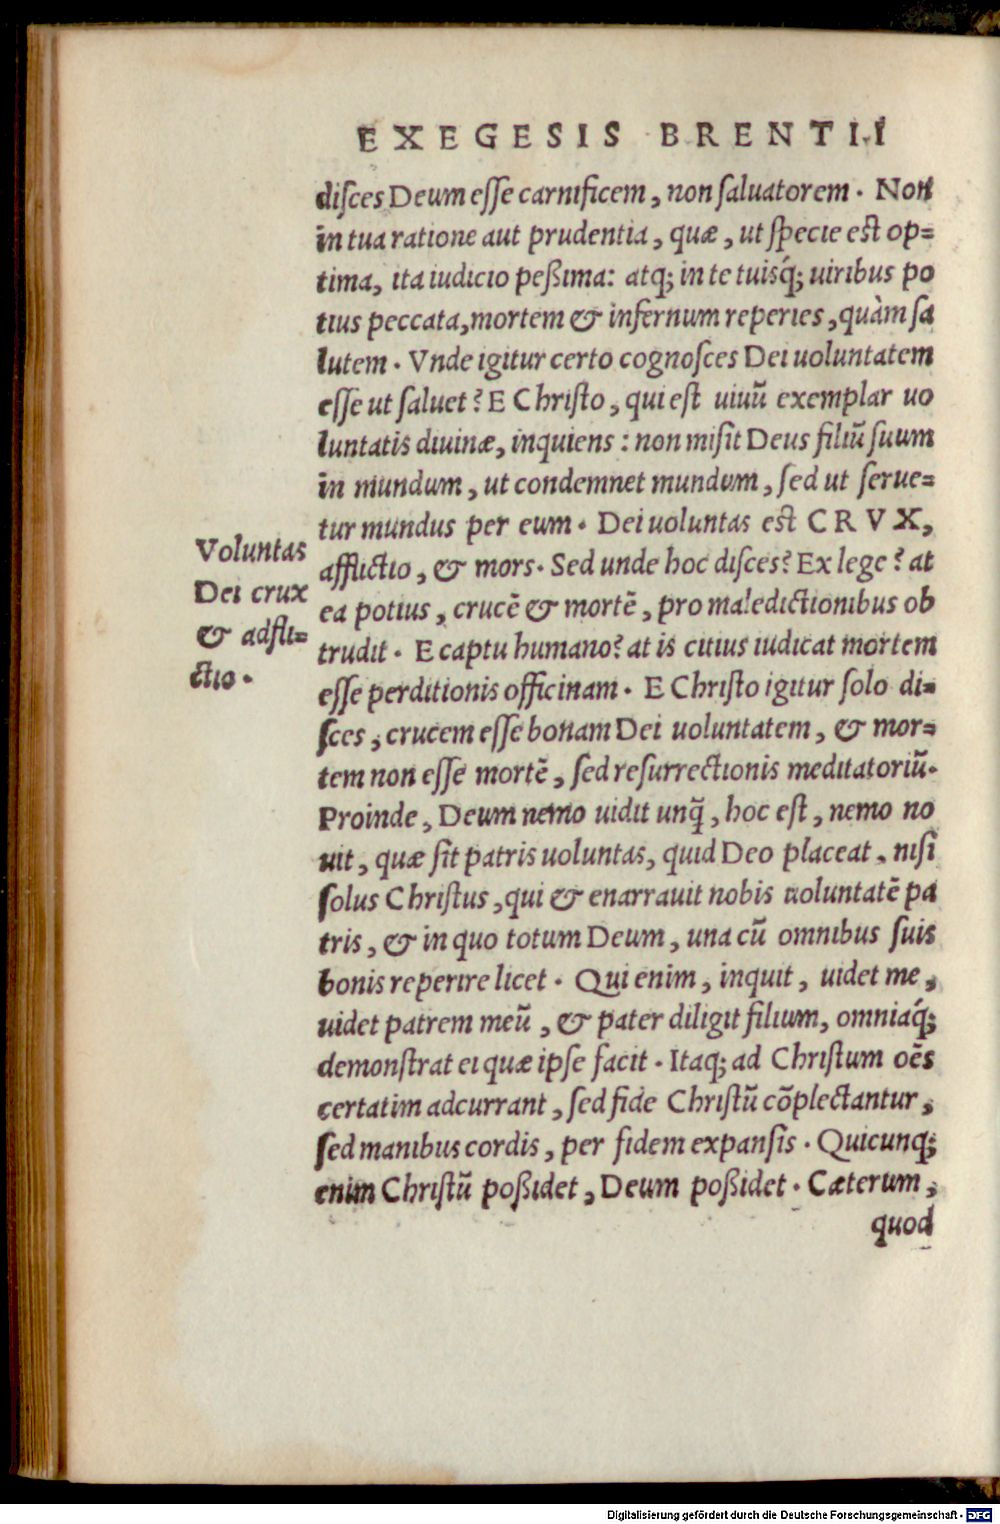 EXEGESIS BRENTII
diſces Deum eſſe carnificem, non ſaluatorem. Non
in tua ratione aut prudentia, quæ, ut ſpecie est op=
tima, ita iudicio peßima: atq; in te tuisq́; uiribus po
tius peccata, mortem & infernum reperies, quàm ſa
lutem. Vnde igitur certo cognoſces Dei uoluntatem
eſſe ut ſaluet? E Chriſto, qui eſt uiuũ exemplar uo
luntatis diuinæ, inquiens: non miſit Deus filiũ ſuum
in mundum, ut condemnet mundum, ſed ut ſerue=
tur mundus per eum. Dei uoluntas est CRVX,
afflictio, & mors. Sed unde hoc diſces? Ex lege? at
ea potius, crucẽ & mortẽ, pro maledictionibus ob
trudit. E captu humano? at is citius iudicat mortem
eſſe perditionis officinam. E Chriſto igitur ſolo di=
ſces, crucem eſſe bonam Dei uoluntatem, & mor=
tem non eſſe mortẽ, ſed reſurrectionis meditatoriũ.
Proinde, Deum nemo uidit unq̃, hoc eſt, nemo no
uit, quæ ſit patris uoluntas, quid Deo placeat, niſi
ſolus Chriſtus, qui & enarrauit nobis uoluntatẽ pa
tris, & in quo totum Deum, una cũ omnibus ſuis
bonis reperire licet. Qui enim, inquit, uidet me,
uidet patrem meũ, & pater diligit filium, omniaq́;
demonſtrat ei quæ ipſe facit. Itaq; ad Chriſtum oẽs
certatim adcurrant, ſed fide Chriſtũ cõplectantur,
ſed manibus cordis, per fidem expanſis. Quicunq;
enim Chriſtũ poßidet, Deum poßidet. Cæterum,
quod
Voluntas
Dei crux
& adfli=
ctio.
Digitalisierung gefördert durch die Deutsche Forschungsgemeinschaft - DFG